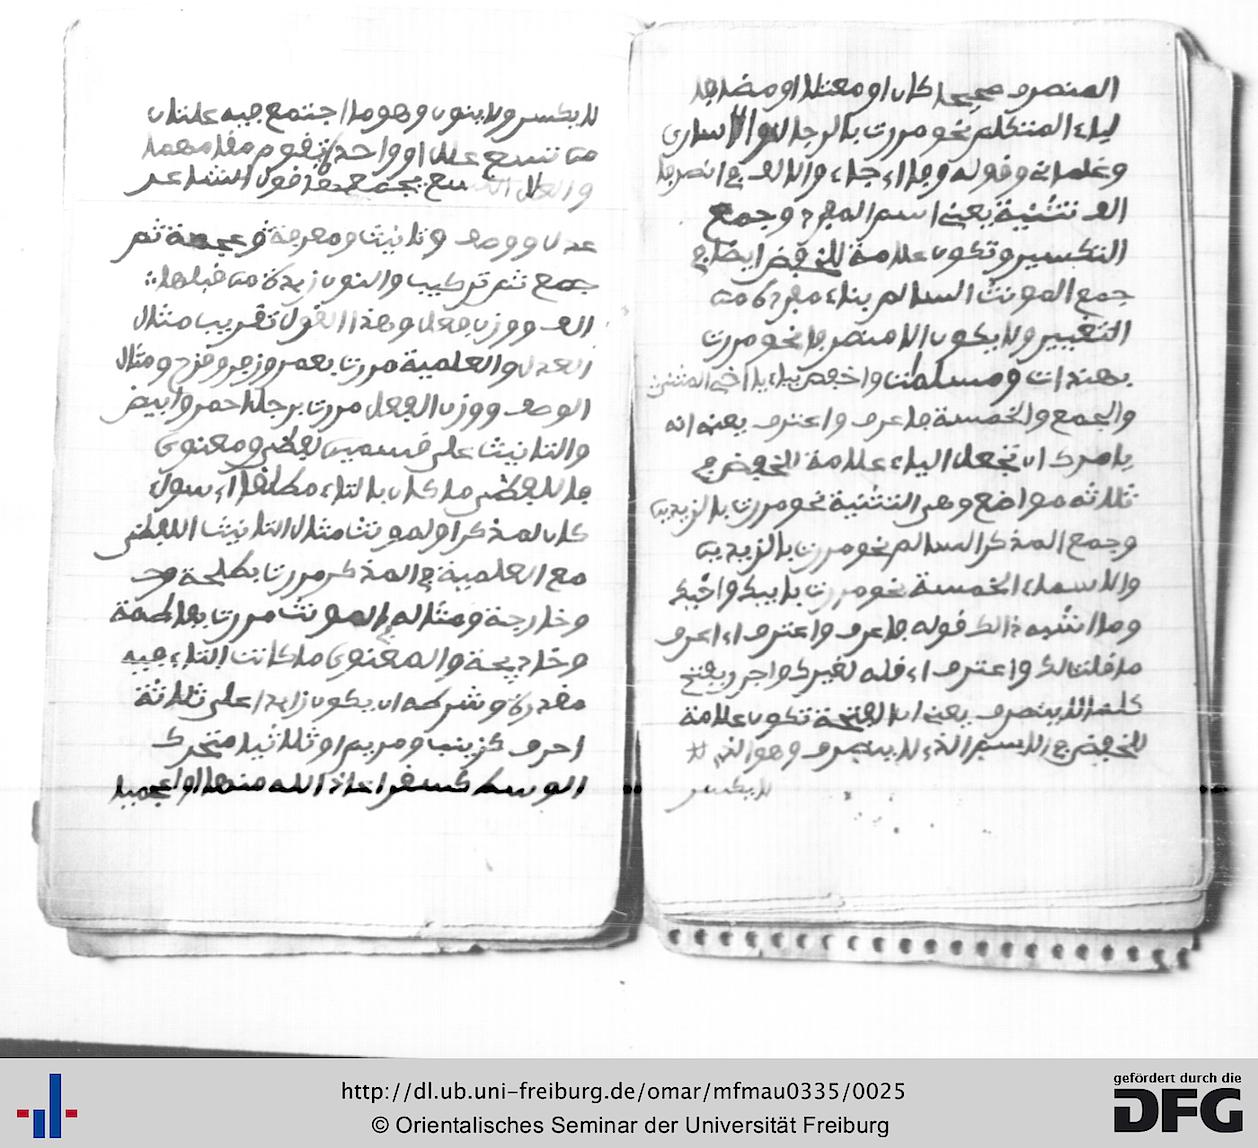 المنصرف صحيحا كان او معتلا او مضافا
لياء المتكلم نحو مررت بالرجال والاسارى
وغلمانى وقوله وجاء والالف فى انصرفا
الف تثنية يعنى اسم المفرد وجمع
التكسير وتكون علامة للخفض ايضا فى
جمع المونث السالم بناء مفرده من
التغيير ولا يكون الا منصرفا نحو مررت
بهندات ومسلمات واخفض بياء يا اخى المثنى
والجمع والخمسة فاعرف واعترف يعنى انه
يامرك ان تجعل الياء علامة للخفض فى
ثلاثه مواضع وهى التثنية نحو مررت بالزيدين
وجمع المذكر السالم نحو مررت بالزيدين
والاسماء الخمسة نحو مررت بابيك واخيك
وما اشبه ذالك قوله فاعرف واعترف اء اعرف
ما قلت لك واعترف اء قله لغيرك واجرر بفتح
كلما لا ينصرف يعنى ان الفتحة تكون علامة
للخفض فى الاسم الذى لا ينصرف وهو الذى
لا يكسر
لا يكسر ولا ينون وهو ما اجتمع فيه علتان
من تسع علل او واحدة تقوم مقامهما
والعلل التسع يجمعها قول الشاعر
عدل ووصف وتانيث ومعرفة وعجمة ثم
جمع ثم تركيب والنون زايدة من قبلها
الف ووزن فعل وهذا القول تقريب مثال
العدل والعلمية مررت بعمر وزفر وقزح ومثال
الوصف ووزن الفعل مررت برجل احمر وابيض
والتانيث على قسمين لفظى ومعنوى
فاللفظى ما كان بالتاء مطلقا اء سواء
كان لمذكر او لمونث مثال التانيث اللفظى
مع العلمية فى المذكر مررت بطلحة وحـ
وخارجة ومثاله فى المونث مررت بفاطمة
وخديجة والمعنوى ما كانت التاء فيه
مقدرة وشرطه ان يكون زايدا على ثلاثة
احرف كزينب ومريم او ثلاثيا متحرك
الوسط كسقر اعاذنا الله منها او اعجميا
http://dl.ub.uni-freiburg.de/omar/mfmau0335/0025
© Orientalisches Seminar der Universität Freiburg
gefördert durch die
DFG